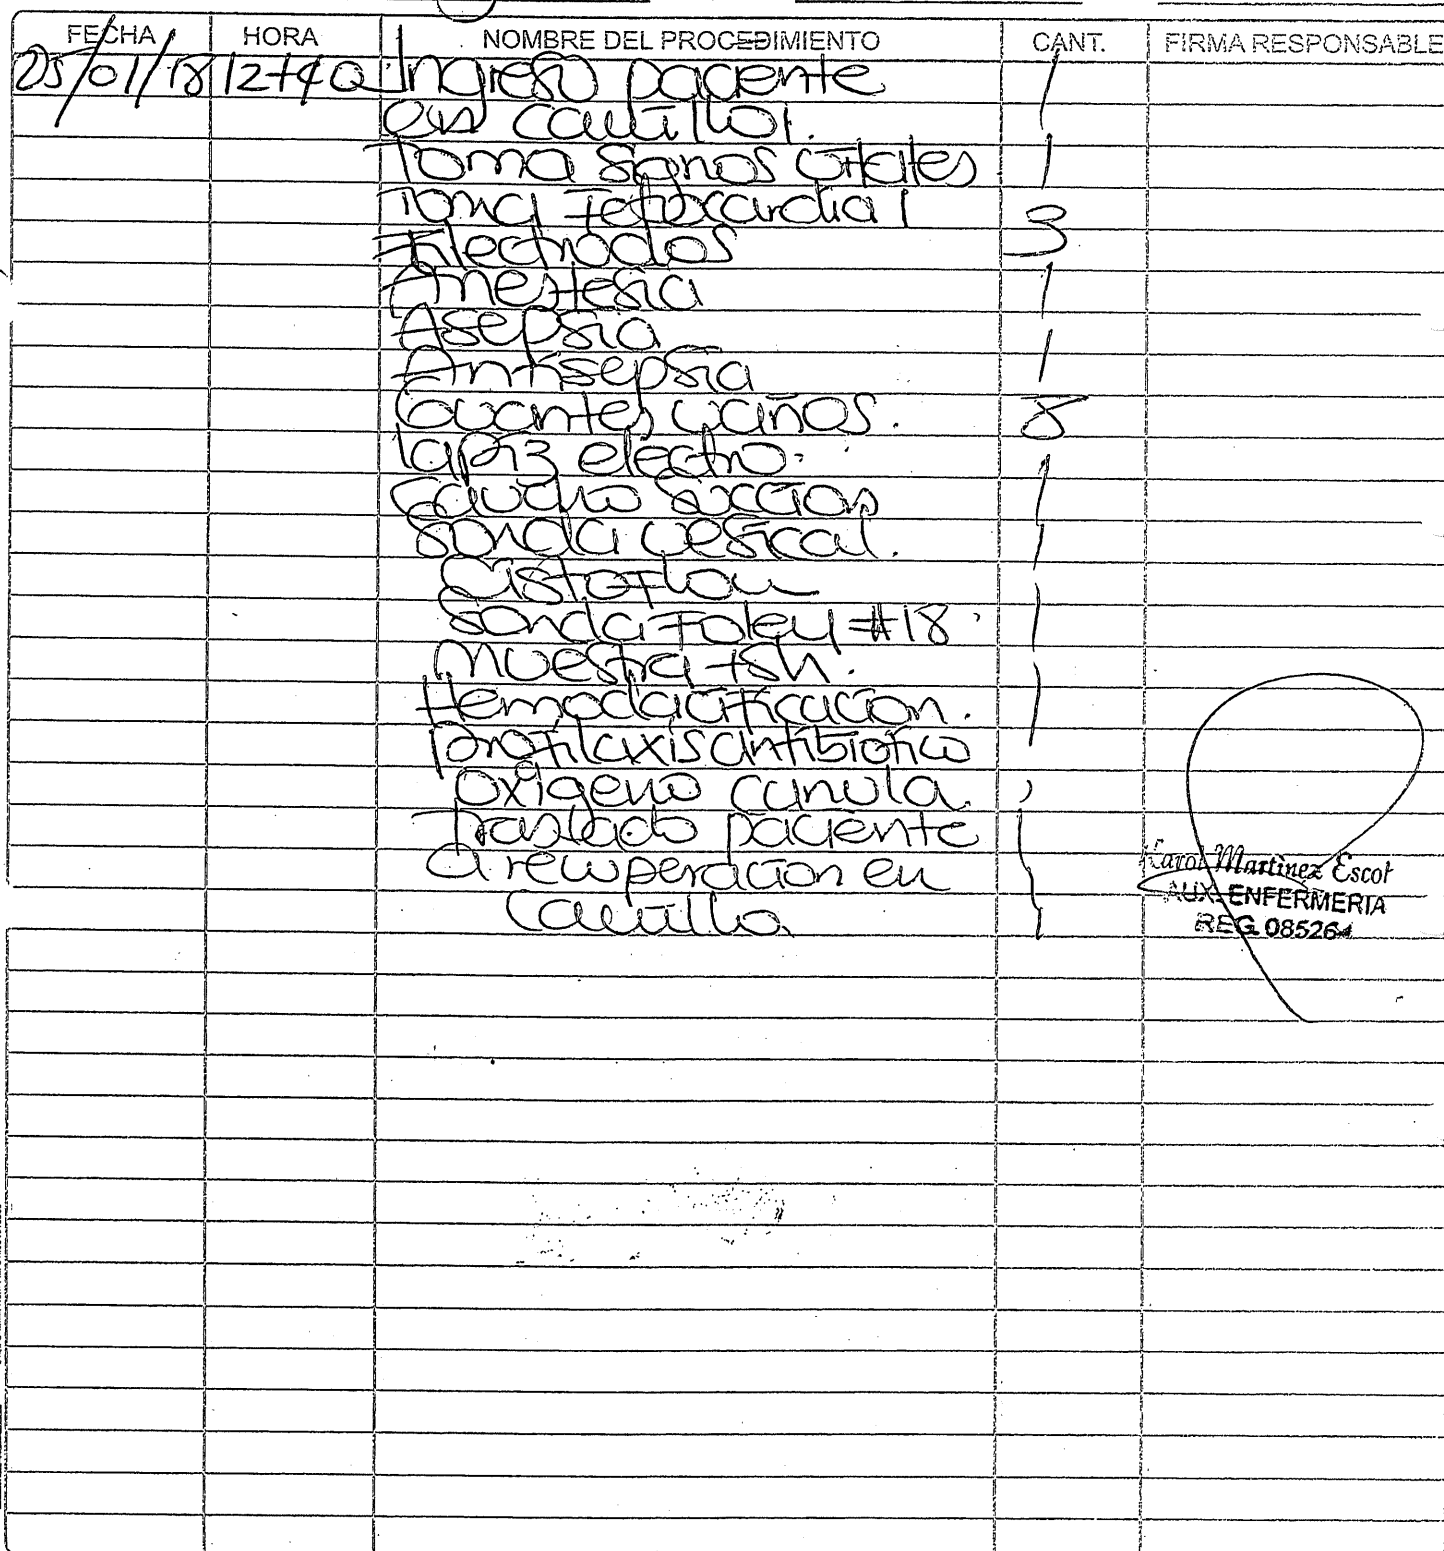 FECHA HORA NOMBRE DEL PROCEDIMIENTO CANT. FIRMA RESPONSABLE
25/01/18 12+40 Ingreso paciente 1
en camilla
Toma signos vitales 1
Toma Fetocardia 1
Electrodos 3
Anestesia 1
Asepsia
Antisepsia 1
Guantes 8
lapiz electro. 1
Caucho succion
Sonda vesical. 1
Cistoflow
Sonda Foley #18
muestra tsh.
Hemoclasificacion.
profilaxis antibiotico
oxigeno canula
Traslado paciente
a recuperacion en
camilla
Karol Martinez Escot
AUX. ENFERMERIA
REG. 085264